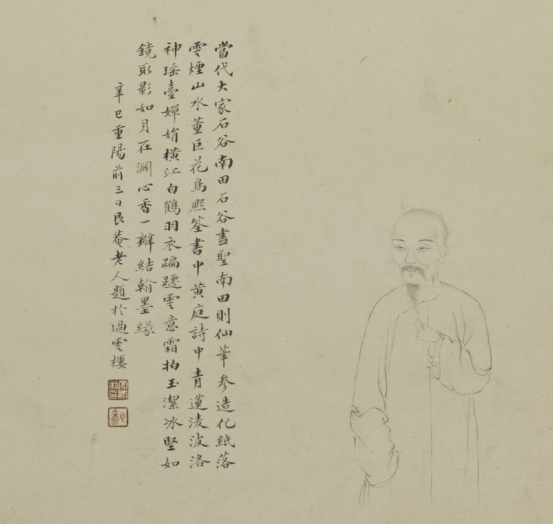 當代大家石谷南田石谷畫聖南田則仙華參造化紙落
雲煙山水董巨花鳥熙筌書中黃庭詩中青蓮淩波洛
神瑤臺嬋娟橫江白鶴羽衣蹁躚雲意霜拍玉潔冰堅如
鏡取影如月在淵心香一瓣結翰墨緣
辛巳重陽前三日艮菴老人題於過雲樓